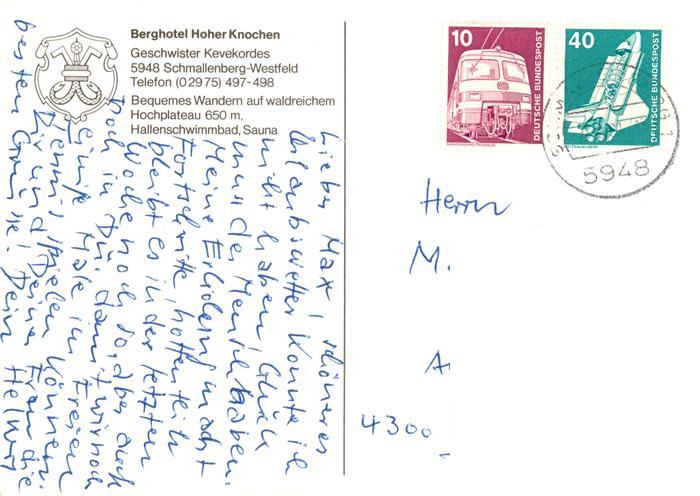 Berghotel Hoher Knochen
Geschwister Kevekordes
5948 Schmallenberg-Westfeld
Telefon (0 29 75) 497-498
Bequemes Wandern auf waldreichem
Hochplateau 650 m,
Hallenschwimmbad, Sauna
Lieber Max! Schöneres
Urlaubswetter konnte ich
nicht haben. Glück
muss der Mensch haben.
Meine Erholung macht
Fortschritte, hoffentlich
bleibt es in der letzten
Woche noch so, aber auch
noch in Dü, damit wir noch
einige Male im Freien
Tennis spielen können.
Dir und Deiner Frau die
besten Grüsse! Dein Helmut
10
DEUTSCHE BUNDESPOST
40
DEUTSCHE BUNDESPOST
5948
Herrn
M.
A
4300